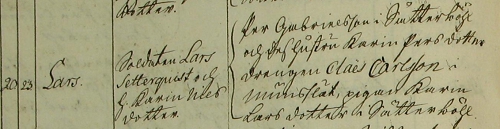 dotter.
20 23 Lars. Soldaten Lars Setterquist och h. Karin Nils dotter.
Per Gabrielsson i Sätterböhl
och dess hustru Karin Pers dotter
drengen Claes Carlson i
pigan Karin
Lars dotter i Sätterböhl.